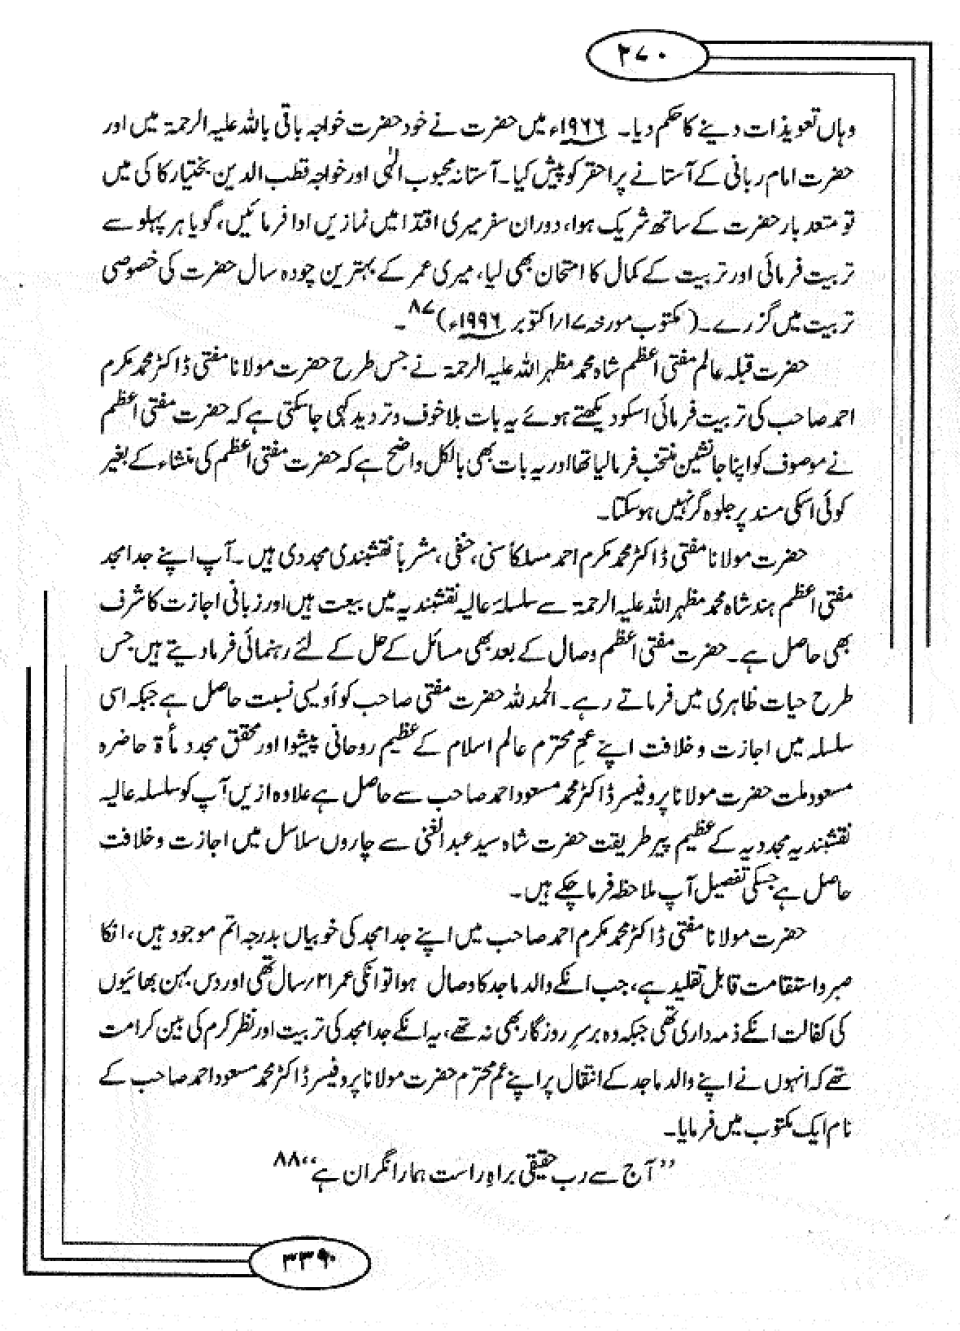 ۲۷۰
وہاں تعویذات دینے کا حکم دیا۔ ۱۹۶۶ء میں حضرت نے خود حضرت خواجہ باقی باللہ علیہ الرحمۃ میں اور
حضرت امام ربانی کے آستانے پر احقر کو پیش کیا۔ آستانہ محبوب الٰہی اور خواجہ قطب الدین بختیار کاکی میں
تو متعدد بار حضرت کے ساتھ شریک ہوا، دوران سفر میری اقتدا میں نمازیں ادا فرمائیں، گویا ہر پہلو سے
تربیت فرمائی اور تربیت کے کمال کا امتحان بھی لیا، میری عمر کے بہترین چودہ سال حضرت کی خصوصی
تربیت میں گزرے۔ (مکتوب مورخہ ۱۷/اکتوبر ۱۹۹۶ء) ۸۷۔
حضرت قبلہ عالم مفتی اعظم شاہ محمد مظہر اللہ علیہ الرحمۃ نے جس طرح حضرت مولانا مفتی ڈاکٹر محمد مکرم
احمد صاحب کی تربیت فرمائی اسکو دیکھتے ہوئے یہ بات بلا خوف و تردید کہی جا سکتی ہے کہ حضرت مفتی اعظم
نے موصوف کو اپنا جانشین منتخب فرمالیا تھا اور یہ بات بھی بالکل واضح ہے کہ حضرت مفتی اعظم کی منشاء کے بغیر
کوئی اسکی مسند پر جلوہ گر نہیں ہو سکتا۔
حضرت مولانا مفتی ڈاکٹر محمد مکرم احمد مسلکاً سنی، حنفی، مشرباً نقشبندی مجددی ہیں۔ آپ اپنے جد امجد
مفتی اعظم ہند شاہ محمد مظہر اللہ علیہ الرحمۃ سے سلسلۂ عالیہ نقشبندیہ میں بیعت ہیں اور زبانی اجازت کا شرف
بھی حاصل ہے۔ حضرت مفتی اعظم وصال کے بعد بھی مسائل کے حل کے لئے رہنمائی فرما دیتے ہیں جس
طرح حیات ظاہری میں فرماتے رہے۔ الحمد للہ حضرت مفتی صاحب کو اُویسی نسبت حاصل ہے جبکہ اسی
سلسلہ میں اجازت و خلافت اپنے عم محترم عالم اسلام کے عظیم روحانی پیشوا اور محقق مجدد مأۃ حاضرہ
مسعود ملت حضرت مولانا پروفیسر ڈاکٹر محمد مسعود احمد صاحب سے حاصل ہے علاوہ ازیں آپ کو سلسلہ عالیہ
نقشبندیہ مجددیہ کے عظیم پیر طریقت حضرت شاہ سید عبد الغنی سے چاروں سلاسل میں اجازت و خلافت
حاصل ہے جسکی تفصیل آپ ملاحظہ فرما چکے ہیں۔
حضرت مولانا مفتی ڈاکٹر محمد مکرم احمد صاحب میں اپنے جد امجد کی خوبیاں بدرجہ اتم موجود ہیں، انکا
صبر و استقامت قابل تقلید ہے، جب انکے والد ماجد کا وصال ہوا تو انکی عمر ۲۱/سال تھی اور دس بہن بھائیوں
کی کفالت انکے ذمہ داری تھی جبکہ وہ برسر روزگار بھی نہ تھے، یہ انکے جد امجد کی تربیت اور نظر کرم کی بین کرامت
تھے کہ انہوں نے اپنے والد ماجد کے انتقال پر اپنے عم محترم حضرت مولانا پروفیسر ڈاکٹر محمد مسعود احمد صاحب کے
نام ایک مکتوب میں فرمایا۔
”آج سے رب حقیقی براہِ راست ہمارا نگران ہے“ ۸۸